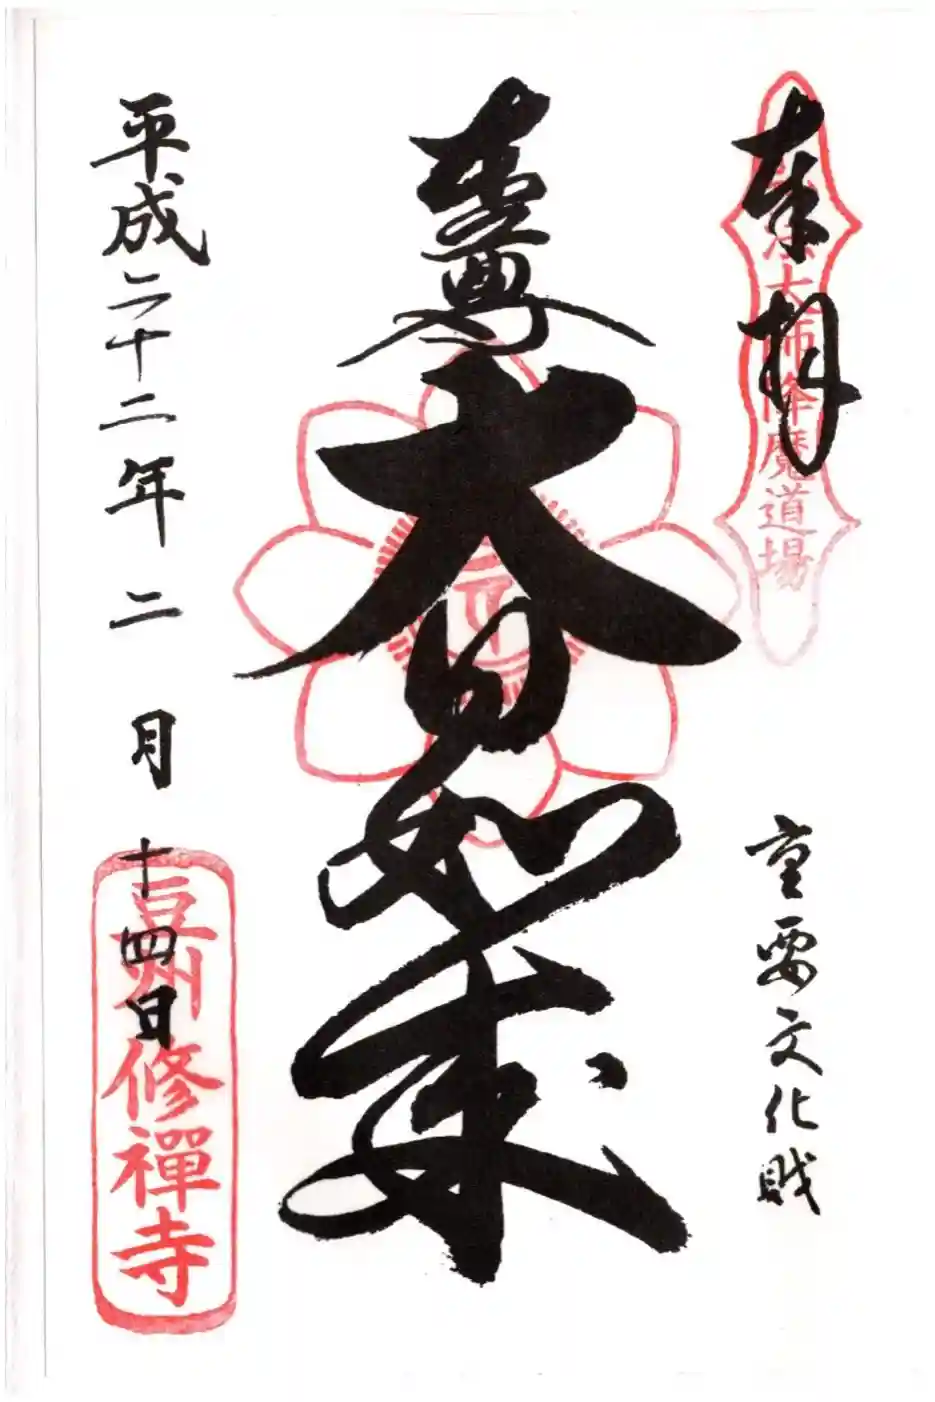 奉拝
弘法大師降魔道場
重要文化財
本尊
大日如来
平成二十二年二月十四日
豆州修禪寺